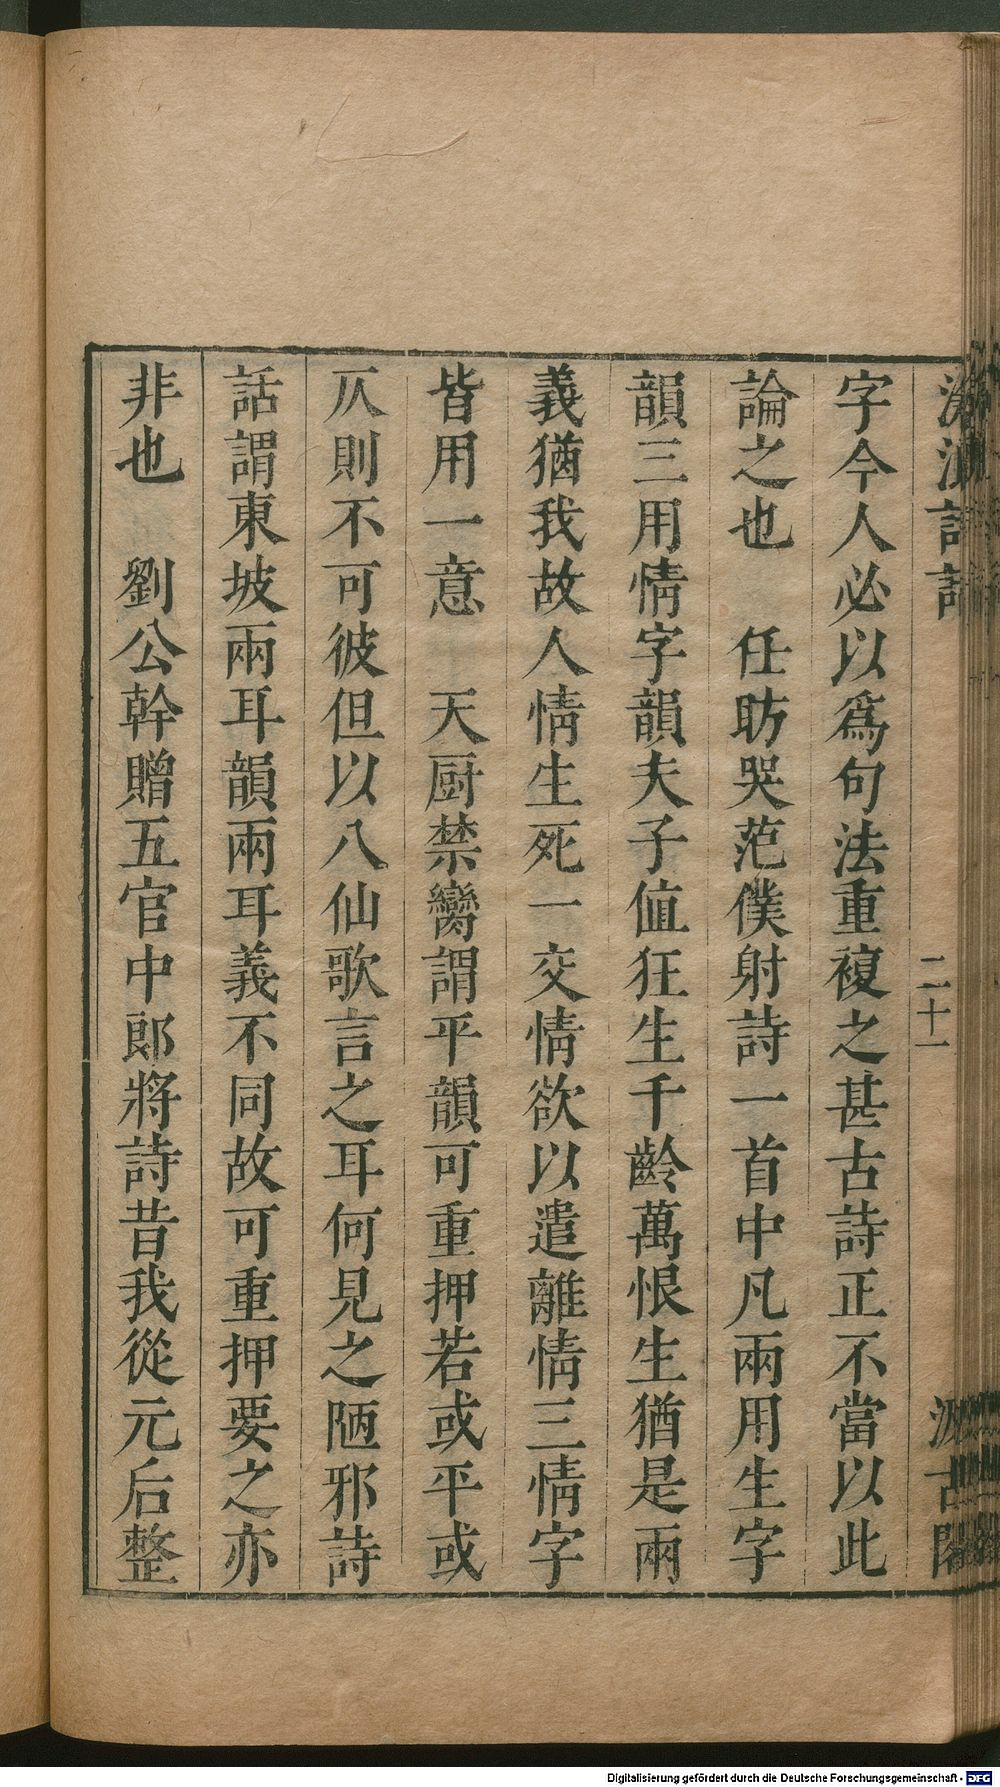 滄浪詩話
二十一
汲古閣
字今人必以爲句法重複之甚古詩正不當以此
論之也　任昉哭范僕射詩一首中凡兩用生字
韻三用情字韻夫子值狂生千齡萬恨生猶是兩
義猶我故人情生死一交情欲以遣離情三情字
皆用一意　天厨禁臠謂平韻可重押若或平或
仄則不可彼但以八仙歌言之耳何見之陋邪詩
話謂東坡兩耳韻兩耳義不同故可重押要之亦
非也　劉公幹贈五官中郎將詩昔我從元后整
Digitalisierung gefördert durch die Deutsche Forschungsgemeinschaft - DFG